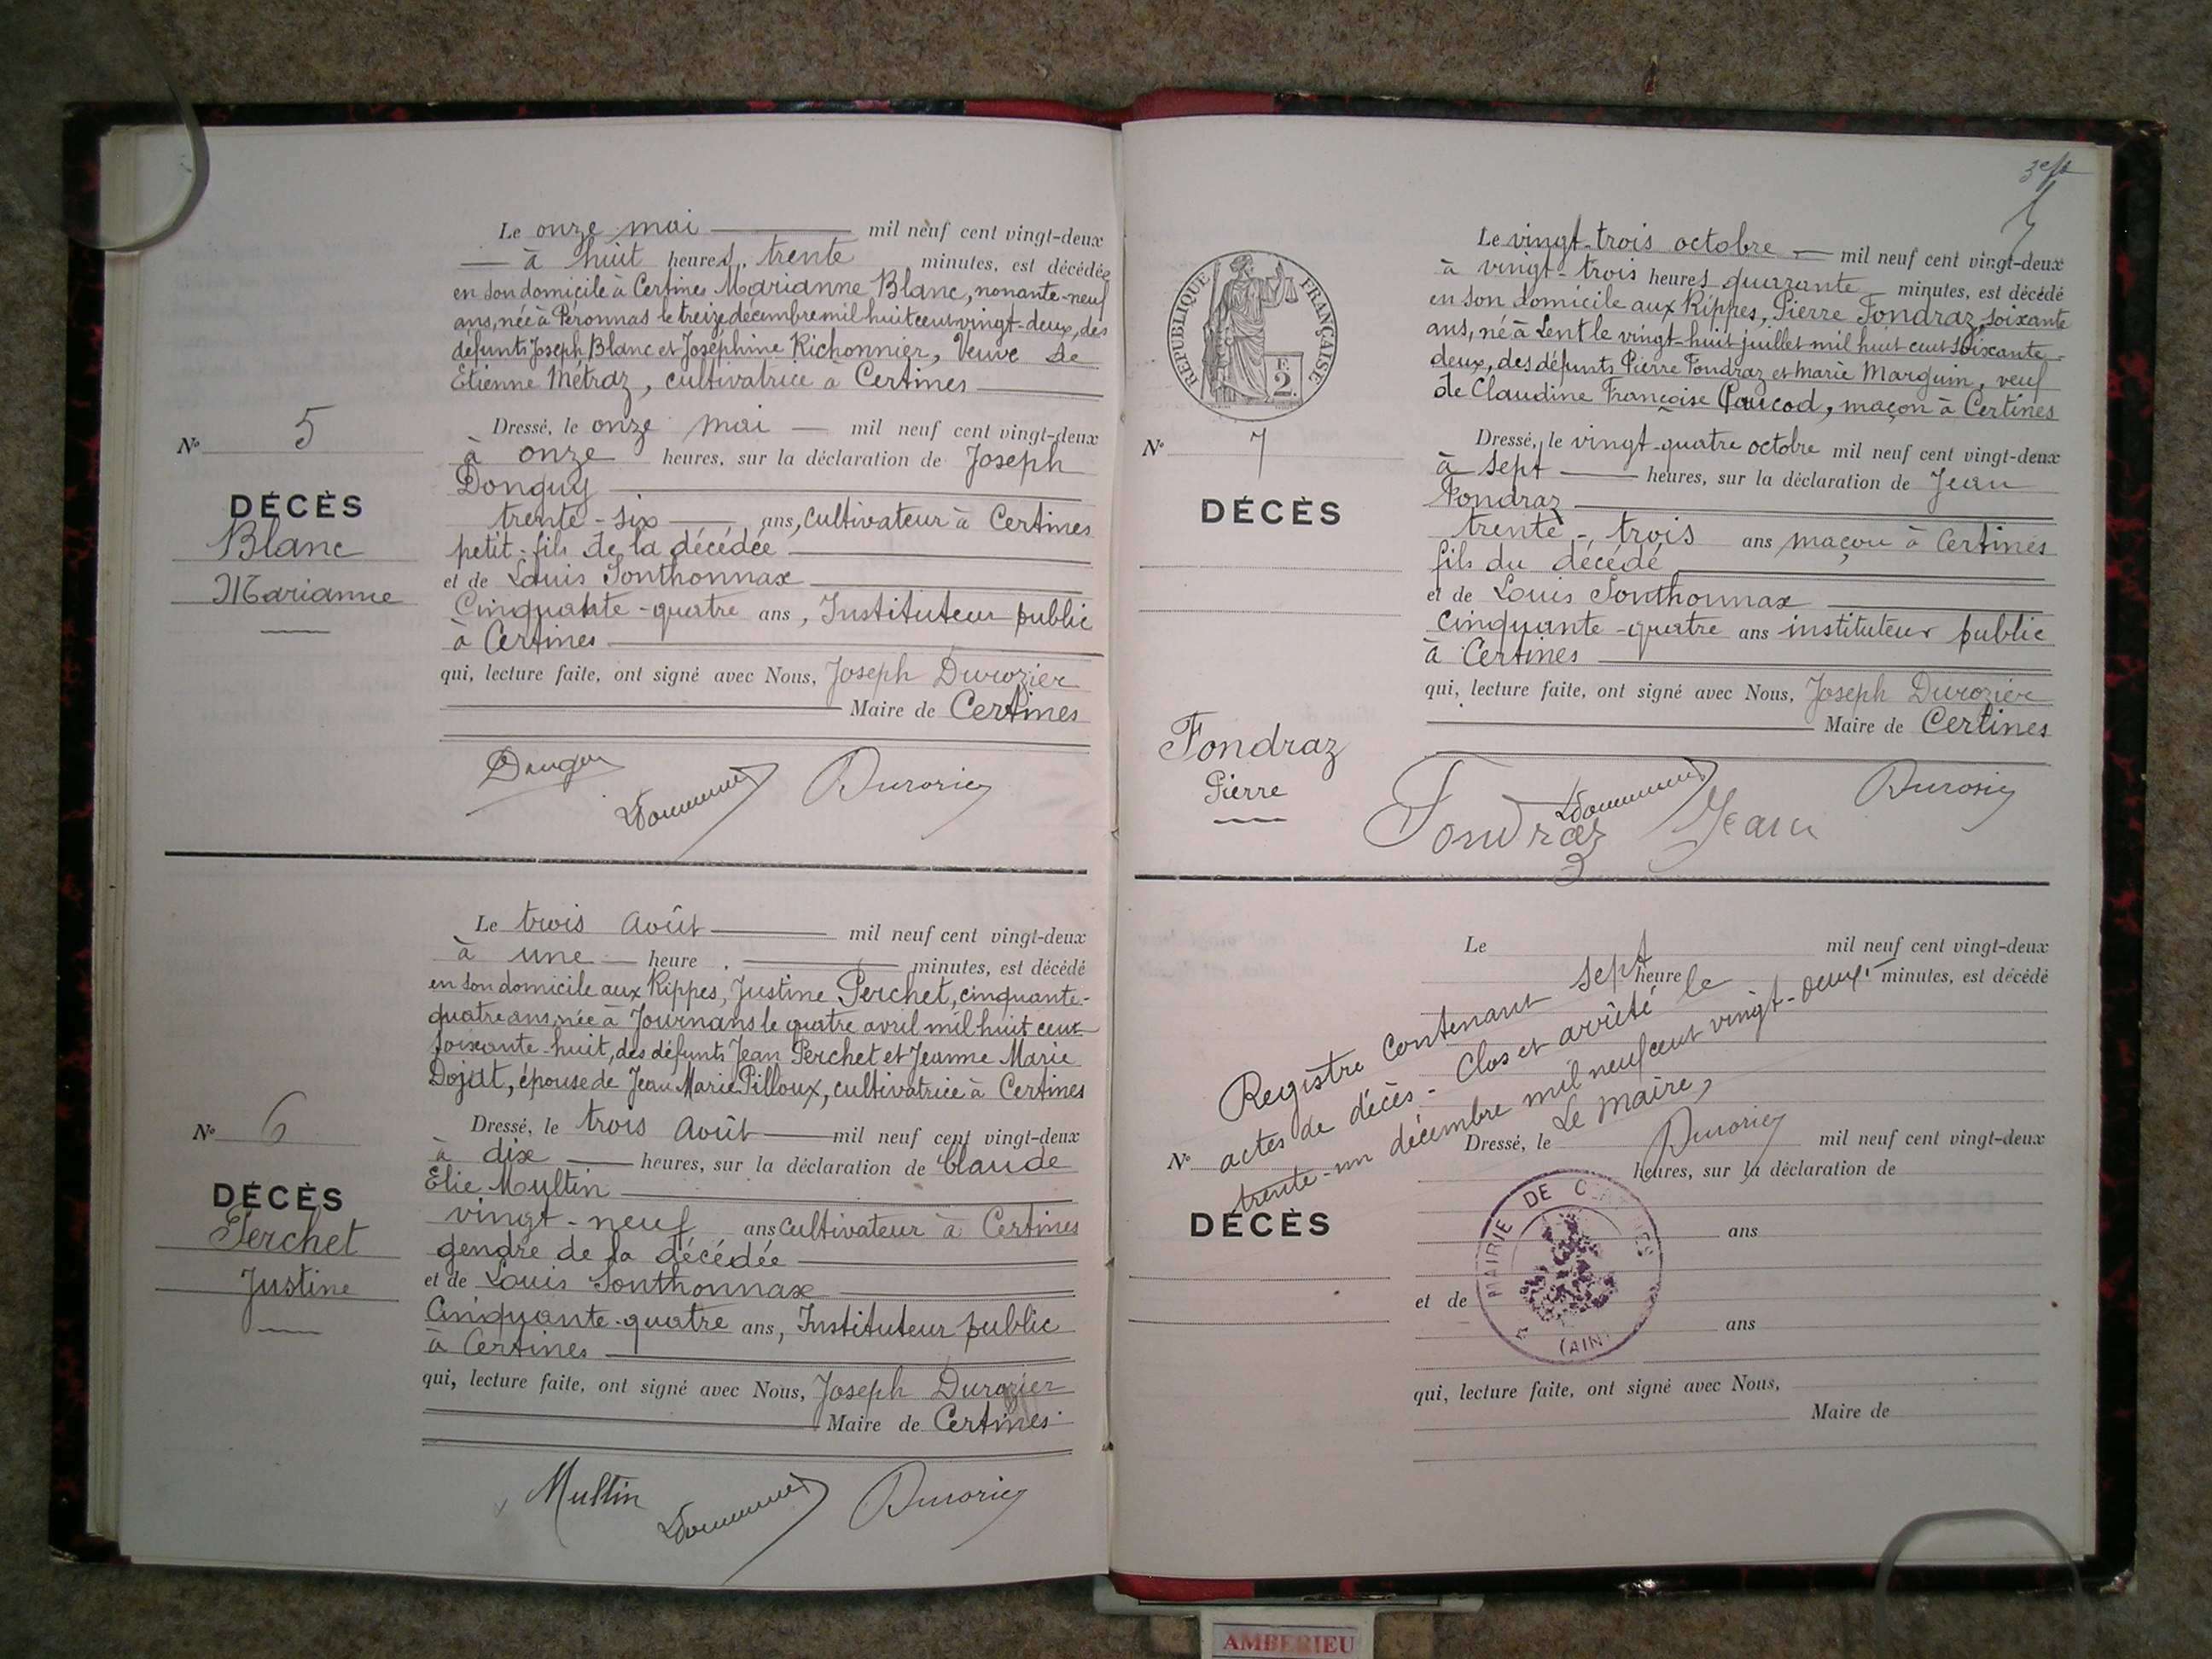 Le onze mai mil neuf cent vingt-deux
à huit heures, trente minutes, est décédée
en son domicile à Certines Marianne Blanc, nonante-neuf
ans, née à Peronnas le treize décembre mil huit cent vingt-deux, des
défunts Joseph Blanc et Joséphine Richonnier, Veuve de
Etienne Métraz, cultivatrice à Certines
Nº 5
DÉCÈS
Blanc
Marianne
Dressé, le onze mai mil neuf cent vingt-deux
à onze heures, sur la déclaration de Joseph
Donguy
trente-six ans, cultivateur à Certines
petit-fils de la décédée
et de Louis Sonthonnax
Cinquante-quatre ans, Instituteur public
à Certines
qui, lecture faite, ont signé avec Nous, Joseph Durozier
Maire de Certines
Le trois Août mil neuf cent vingt-deux
à une heure minutes, est décédé
en son domicile aux Rippes, Justine Perchet, cinquante-
quatre ans, née à Journans le quatre avril mil huit cent
soixante-huit, des défunts Jean Perchet et Jeanne Marie
Dojat, épouse de Jean Marie Pilloux, cultivatrice à Certines
Nº 6
DÉCÈS
Perchet
Justine
Dressé, le trois Août mil neuf cent vingt-deux
à dix heures, sur la déclaration de Claude
Elie Multin
vingt-neuf ans cultivateur à Certines
gendre de la décédée
et de Louis Sonthonnax
Cinquante-quatre ans, Instituteur public
à Certines
qui, lecture faite, ont signé avec Nous, Joseph Durozier
Maire de Certines
Multin Durozier
RÉPUBLIQUE FRANÇAISE
2
Le vingt-trois octobre mil neuf cent vingt-deux
à vingt-trois heures quarante minutes, est décédé
en son domicile aux Rippes, Pierre Fondraz, soixante
ans, né à Lent le vingt-huit juillet mil huit cent soixante-
deux, des défunts Pierre Fondraz et Marie Marguin, veuf
de Claudine Françoise Paucod, maçon à Certines
Nº 7
DÉCÈS
Fondraz
Pierre
Dressé, le vingt-quatre octobre mil neuf cent vingt-deux
à sept heures, sur la déclaration de Jean
Fondraz
trente-trois ans maçon à Certines
fils du décédé
et de Louis Sonthonnax
cinquante-quatre ans instituteur public
à Certines
qui, lecture faite, ont signé avec Nous, Joseph Durozier
Maire de Certines
Fondraz Jean Durozier
Le mil neuf cent vingt-deux
heure minutes, est décédé
Registre contenant sept
actes de décès. Clos et arrêté le
trente-un décembre mil neuf cent vingt-deux.
Le Maire,
Durozier
Nº
DÉCÈS
Dressé, le mil neuf cent vingt-deux
heures, sur la déclaration de
ans
et de
ans
qui, lecture faite, ont signé avec Nous,
Maire de
MAIRIE DE CERTINES
(AIN)
AMBERIEU